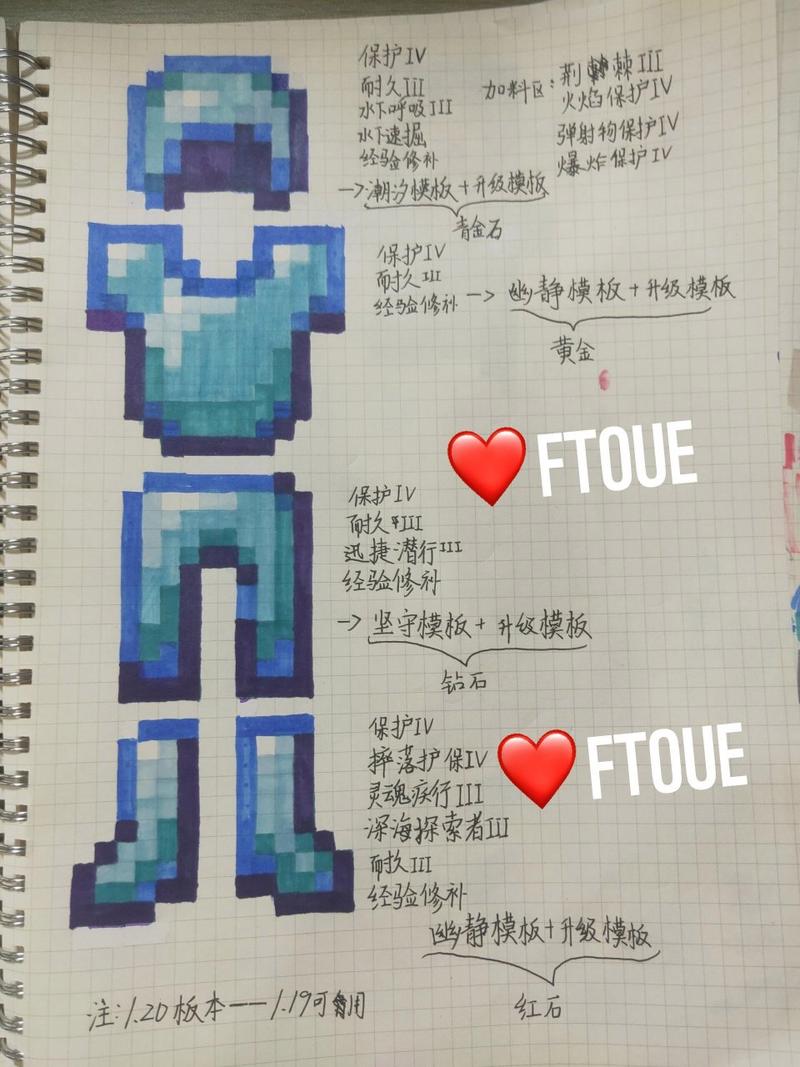 保护IV
耐久III
水下呼吸III
水下速掘
经验修补
加料区：荆棘III
火焰保护IV
弹射物保护IV
爆炸保护IV
->潮汐模板+升级模板
青金石
保护IV
耐久III
经验修补 -> 幽静模板+升级模板
黄金
❤️FTOUE
保护IV
耐久III
迅捷潜行III
经验修补
->坚守模板+升级模板
钻石
保护IV
摔落护保IV
❤️FTOUE
灵魂疾行III
深海探索者III
耐久III
经验修补
幽静模板+升级模板
红石
注:1.20板本——1.19可用